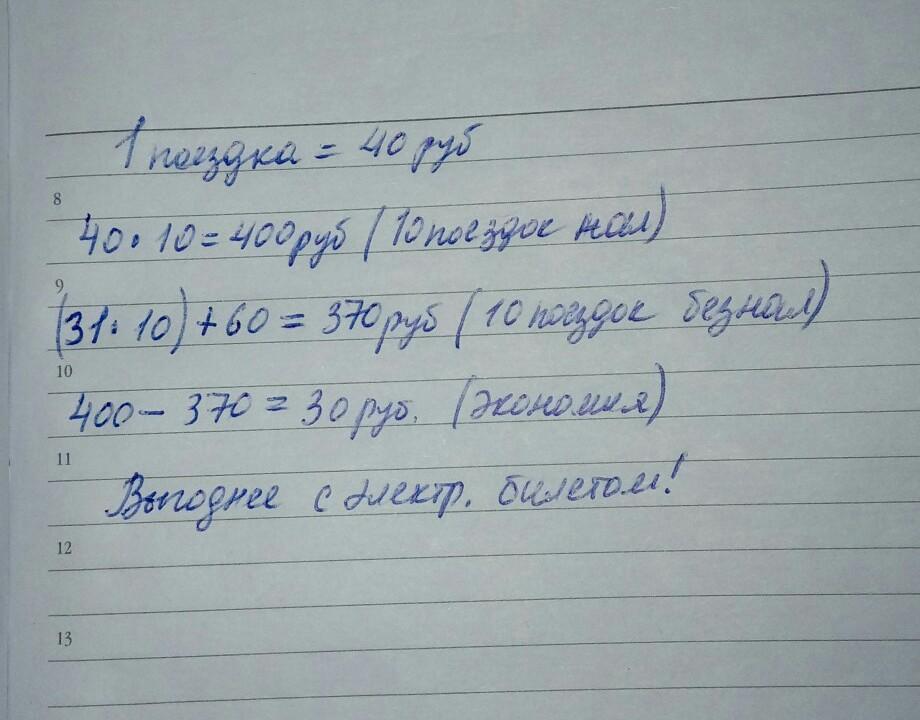 1 поездка = 40 руб
8
40 · 10 = 400 руб (10 поездок нал)
9
(31 · 10) + 60 = 370 руб (10 поездок безнал)
10
400 - 370 = 30 руб. (экономия)
11
Выгоднее с электр. билетом!
12
13